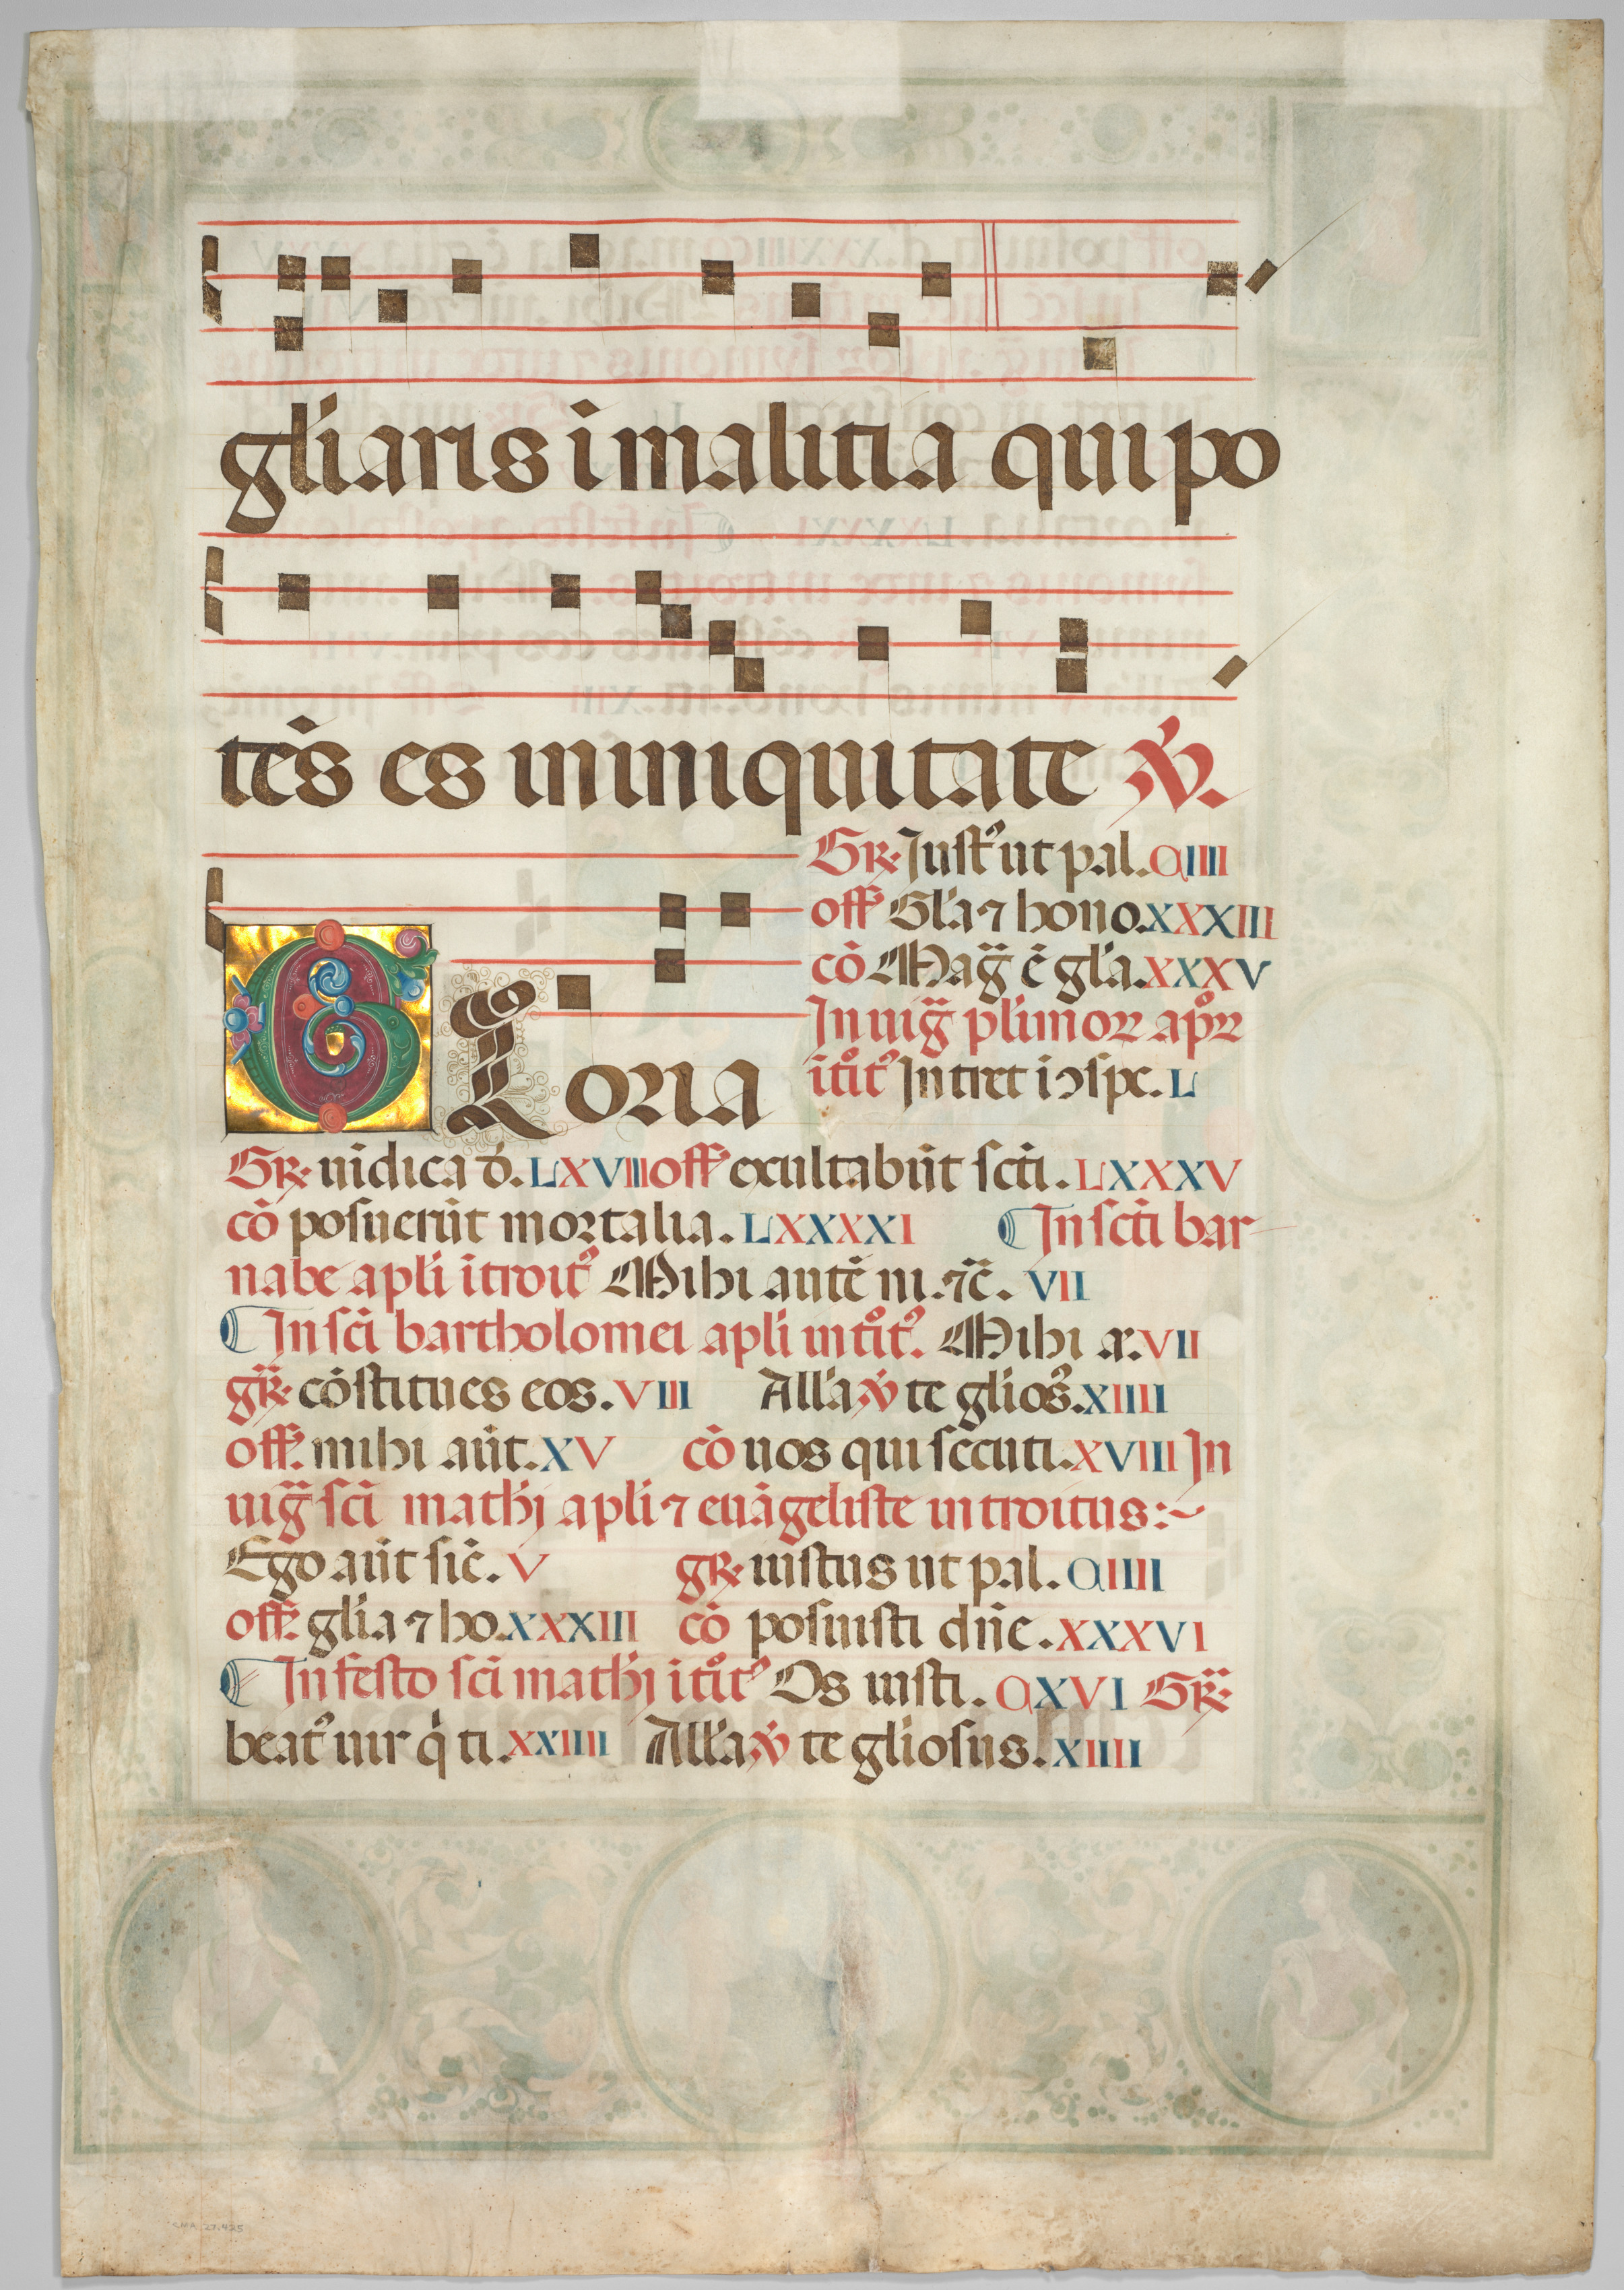 gl̄iaris i malitia qui po
tēs es in iniquitate ℣.
GLoria
Gr. Just᾽ ut pal. QIIII
off̄ Gl̄a ⁊ hono. XXXIII
cō Maḡ ē gl̄a. XXXV
In uiḡ pl̄imoꝝ ap̄oꝝ
itōit᾽ Intret i ↄspc. L
Gr. uīdica d̄. LXVIII off̄ exultabūt sc̄ti. LXXXV
cō posuerūt mortalia. LXXXXI ¶ In sc̄ti bar
nabe apl̄i itroit᾽ Mihi autē ni. ⁊c̄. VII
¶ In sc̄i bartholomei apl̄i intōit᾽. Mihi a. VII
gr̄. cōstitues eos. VIII All̄a ℣ te gl̄ios᾽. XIIII
off̄. mihi aūt. XV cō uos qui secuti. XVIII In
uiḡ sc̄i math̄j apl̄i ⁊ euāgeliste introitus:~
Ego aūt sic̄. V gr. iustus ut pal. QIIII
off̄. gl̄ia ⁊ ho. XXXIII cō posuisti dn̄e. XXXVI
¶ In festo sc̄i math̄j itōit᾽ Os iusti. QXVI Gr̄.
beat᾽ uir q̇ ti. XXIIII All̄a ℣ te gl̄iosus. XIIII
CMA 27.425